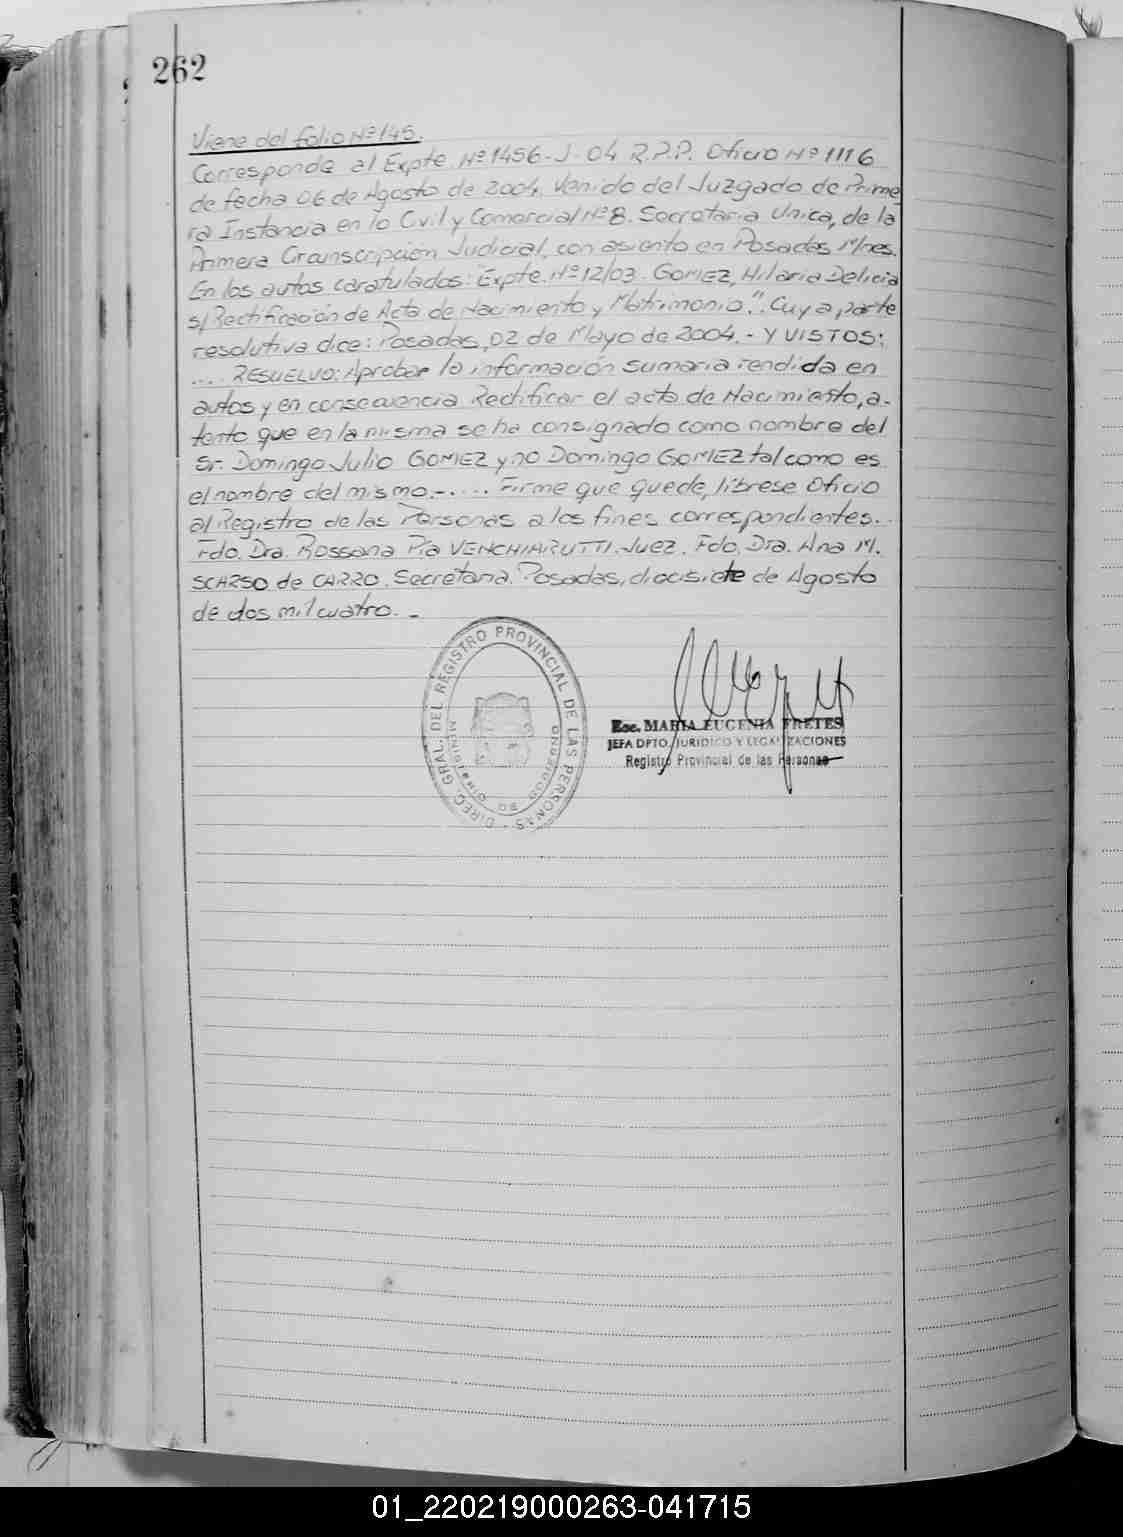 262
Viene del folio Nº 145.
Corresponde al Expte. Nº 1456-J-04 R.P.P. Oficio Nº 1116
de fecha 06 de Agosto de 2004, Venido del Juzgado de Prime
ra Instancia en lo Civil y Comercial Nº 8. Secretaria Unica, de la
Primera Circunscripción Judicial, con asiento en Posadas Mnes.
En los autos caratulados: "Expte. Nº 12/03. GOMEZ, Hilaria Delicia
s/ Rectificación de Acta de Nacimiento y Matrimonio". Cuya parte
resolutiva dice: Posadas, 02 de Mayo de 2004.- Y VISTOS:
.... RESUELVO: Aprobar la información sumaria rendida en
autos y en consecuencia Rectificar el acta de Nacimiento, a-
tento que en la misma se ha consignado como nombre del
Sr. Domingo Julio GOMEZ y no Domingo GOMEZ tal como es
el nombre del mismo.-.... Firme que quede, líbrese Oficio
al Registro de las Personas a los fines correspondientes.
Fdo. Dra. Rossana Pía VENCHIARUTTI. Juez. Fdo. Dra. Ana M.
SCARSO de CARRO. Secretaria. Posadas, diecisiete de Agosto
de dos mil cuatro.-
DIREC. GRAL. DEL REGISTRO PROVINCIAL DE LAS PERSONAS -
Esc. MARIA EUGENIA FRETES
JEFA DPTO. JURIDICO Y LEGALIZACIONES
Registro Provincial de las Personas
01_220219000263-041715